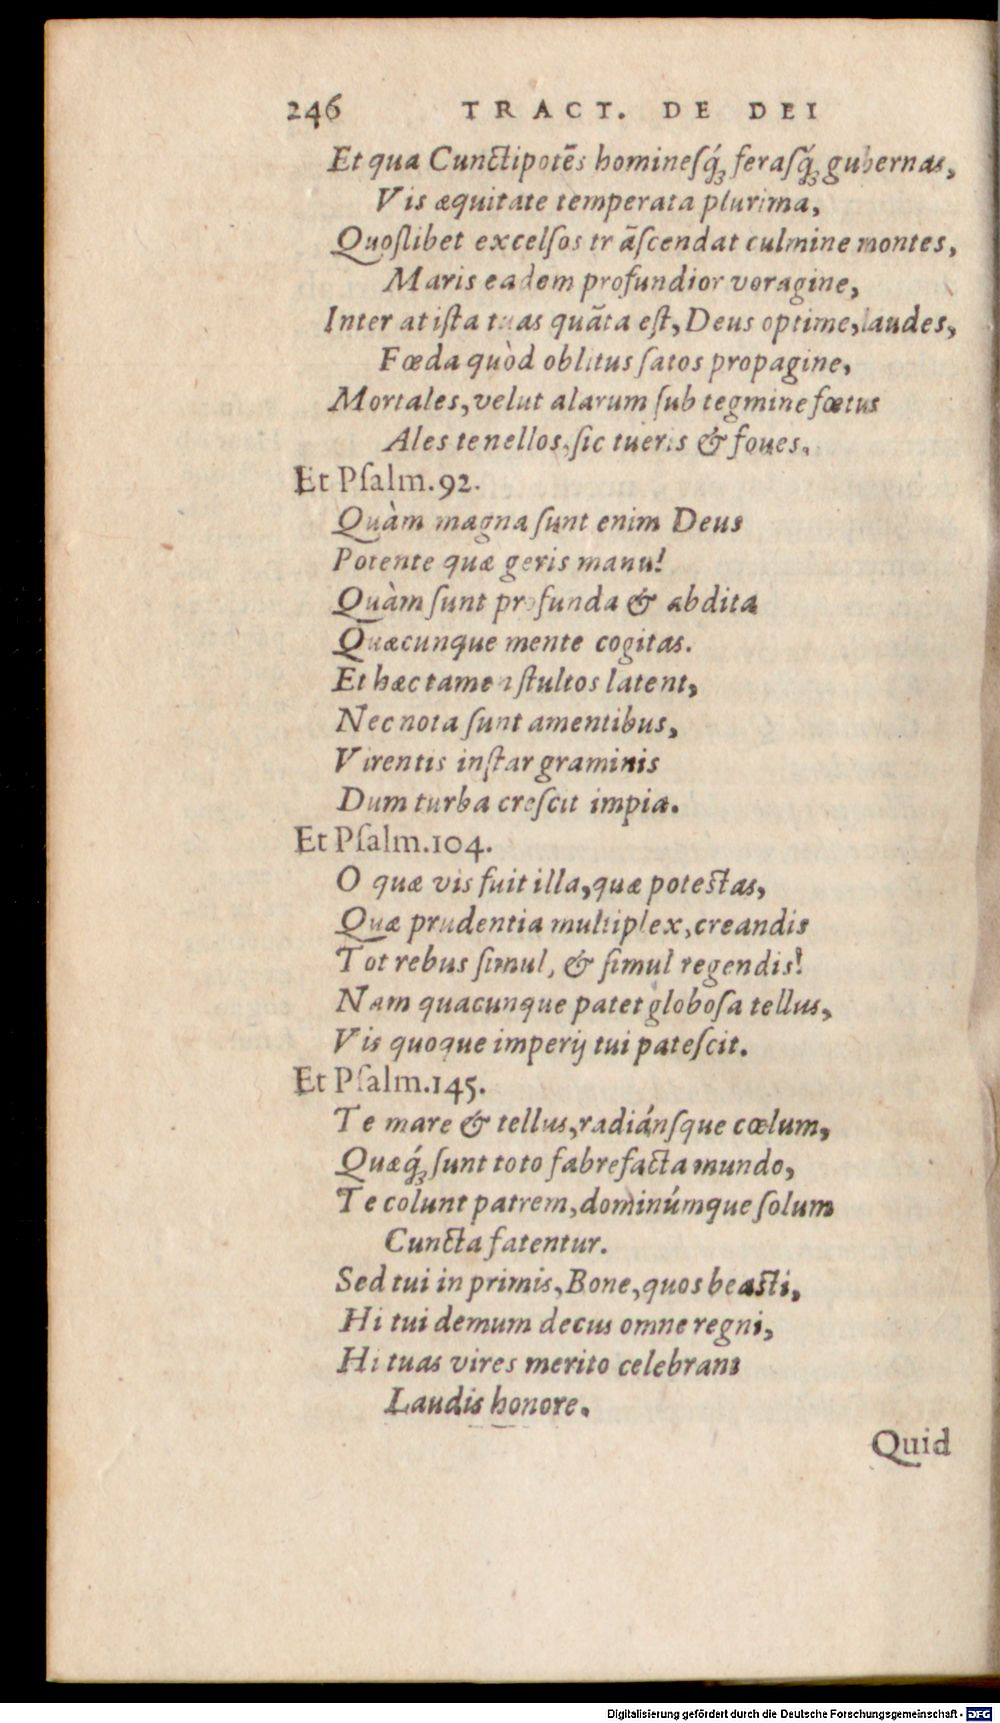 246 TRACT. DE DEI
Et qua Cunctipotẽs hominesq́; ferasq́; gubernas,
Vis æquitate temperata plurima,
Quoslibet excelsos trãscendat culmine montes,
Maris eadem profundior voragine,
Inter at ista tuas quãta est, Deus optime, laudes,
Fœda quòd oblitus satos propagine,
Mortales, velut alarum sub tegmine fœtus
Ales tenellos, sic tueris & foues.
Et Psalm.92.
Quàm magna sunt enim Deus
Potente quæ geris manu!
Quàm sunt profunda & abdita
Quæcunque mente cogitas.
Et hæc tamen stultos latent,
Nec nota sunt amentibus,
Virentis instar graminis
Dum turba crescit impia.
Et Psalm.104.
O quæ vis fuit illa, quæ potestas,
Quæ prudentia multiplex, creandis
Tot rebus simul, & simul regendis!
Nam quacunque patet globosa tellus,
Vis quoque imperij tui patescit.
Et Psalm.145.
Te mare & tellus, radiánsque cœlum,
Quæq́; sunt toto fabrefacta mundo,
Te colunt patrem, dominúmque solum
Cuncta fatentur.
Sed tui in primis, Bone, quos beasti,
Hi tui demum decus omne regni,
Hi tuas vires merito celebrant
Laudis honore.
Quid
Digitalisierung gefördert durch die Deutsche Forschungsgemeinschaft - DFG